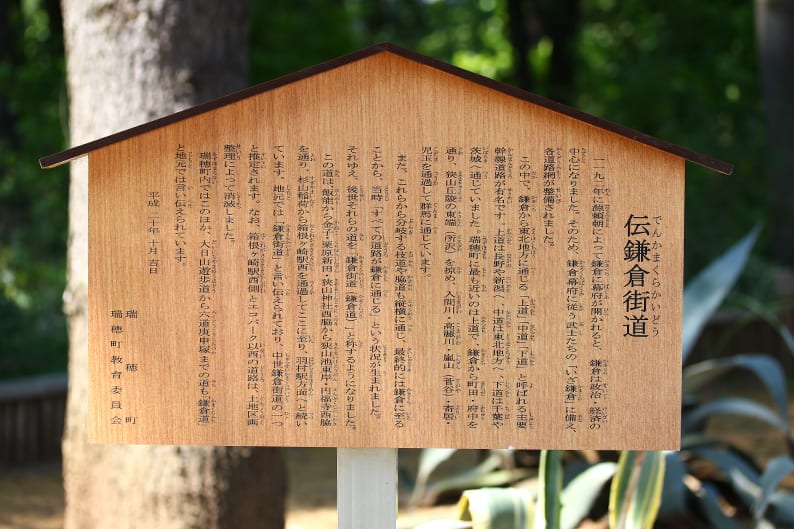 でんかまくらかいどう
伝鎌倉街道
一一九二年に源頼朝によって鎌倉に幕府が開かれると、鎌倉は政治・経済の
中心になりました。そのため、鎌倉幕府に従う武士たちの「いざ鎌倉」に備え、
各道路網が整備されました。
この中で、鎌倉から東北地方に通じる「上道」「中道」「下道」と呼ばれる主要
幹線道路が有名です。上道は長野や新潟へ、中道は東北地方へ、下道は千葉や
茨城へ通じていました。瑞穂町に最も近いのは上道で、鎌倉から町田・府中を
通り、狭山丘陵の東端（所沢）を掠め、入間川・高麗川・嵐山（菅谷）・寄居・
児玉を通過して群馬に通じています。
また、これらから分岐する枝道や脇道も縦横に通じ、最終的には鎌倉に至る
ことから、当時「すべての道路が鎌倉に通じる」という状況が生まれました。
それゆえ、後世それらの道を「鎌倉街道（鎌倉道）」と称するようになりました。
この道は、飯能から金子・栗原新田・狭山神社西脇から狭山池東岸・円福寺西脇
を通り、杉山稲荷から箱根ヶ崎駅西を通過してここに至り、羽村駅方面へと続い
ています。地元では「鎌倉街道」と言い伝えられており、中世鎌倉街道の一つ
と推定されます。なお、箱根ヶ崎駅西側とエコパーク以西の道路は、土地区画
整理によって消滅しました。
瑞穂町内ではこのほか、大日山遊歩道から六道庚申塚までの道も「鎌倉道」
と地元では言い伝えられています。
平成二十年十月吉日
瑞穂町
瑞穂町教育委員会